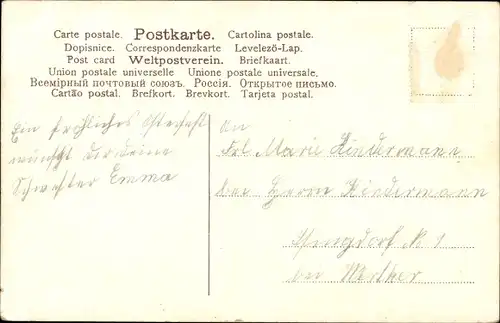 Carte postale. Postkarte. Cartolina postale.
Dopisnice. Correspondenzkarte Levelezö-Lap.
Post card Weltpostverein. Briefkaart.
Union postale universelle Unione postale universale.
Всемірный почтовый союзъ. Россія. Открытое письмо.
Cartão postal. Brefkort. Brevkort. Tarjeta postal.
Ein fröhliches Osterfest
wünscht dir deine
Schwester Emma
An
Frl. Marie Kindermann
bei Herrn Kindermann
N 1
bei